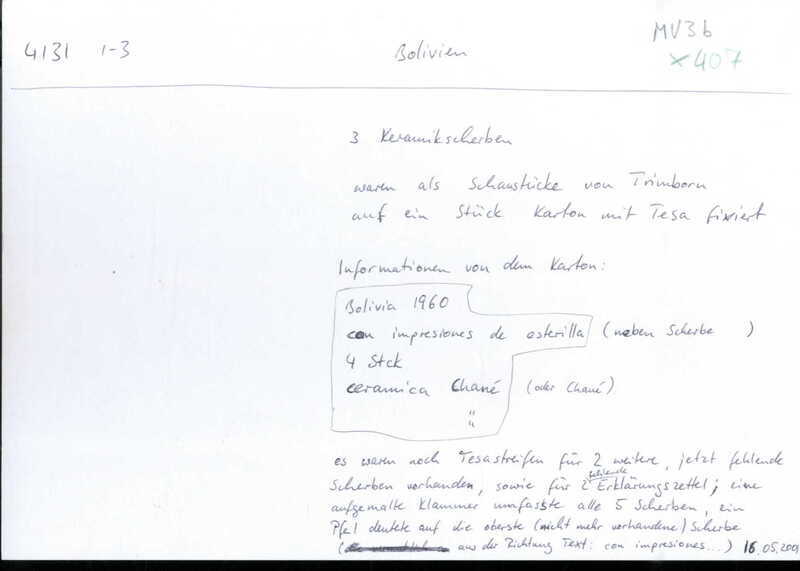 4131 1-3 Bolivien MV3b
x407
3 Keramikscherben
waren als Schaustücke von Trimborn
auf ein Stück Karton mit Tesa fixiert
Informationen von dem Karton:
Bolivia 1960
con impresiones de esterilla (neben Scherbe )
4 Stck
ceramica Chané (oder Chané)
"
"
es waren noch Tesastreifen für 2 weitere, jetzt fehlende
Scherben vorhanden, sowie für 2 fehlende Erklärungszettel; eine
aufgemalte Klammer umfasste alle 5 Scherben, ein
Pfeil deutete auf die oberste (nicht mehr vorhandene) Scherbe
( aus der Richtung Text: con impresiones...) 16.05.2001